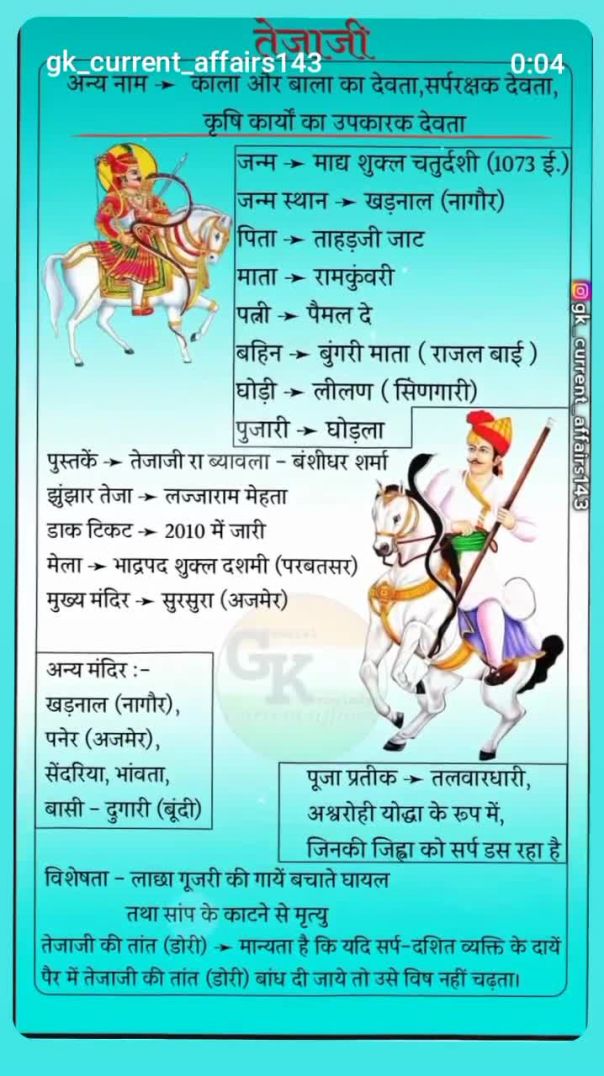 तेजाजी
gk_current_affairs143
0:04
अन्य नाम → काला और बाला का देवता,सर्परक्षक देवता,
कृषि कार्यों का उपकारक देवता
जन्म → माद्य शुक्ल चतुर्दशी (1073 ई.)
जन्म स्थान → खड़नाल (नागौर)
पिता → ताहड़जी जाट
माता → रामकुंवरी
पत्नी → पैमल दे
बहिन → बुंगरी माता ( राजल बाई )
घोड़ी → लीलण ( सिणगारी)
पुजारी → घोड़ला
gk_current_affairs143
पुस्तकें → तेजाजी रा ब्यावला – बंशीधर शर्मा
झुंझार तेजा → लज्जाराम मेहता
डाक टिकट → 2010 में जारी
मेला → भाद्रपद शुक्ल दशमी (परबतसर)
मुख्य मंदिर → सुरसुरा (अजमेर)
GK
अन्य मंदिर :-
खड़नाल (नागौर),
पनेर (अजमेर),
सेंदरिया, भांवता,
बासी – दुगारी (बूंदी)
पूजा प्रतीक → तलवारधारी,
अश्वरोही योद्धा के रूप में,
जिनकी जिह्वा को सर्प डस रहा है
विशेषता – लाछा गूजरी की गायें बचाते घायल
तथा सांप के काटने से मृत्यु
तेजाजी की तांत (डोरी) → मान्यता है कि यदि सर्प-दशित व्यक्ति के दायें
पैर में तेजाजी की तांत (डोरी) बांध दी जाये तो उसे विष नहीं चढ़ता।